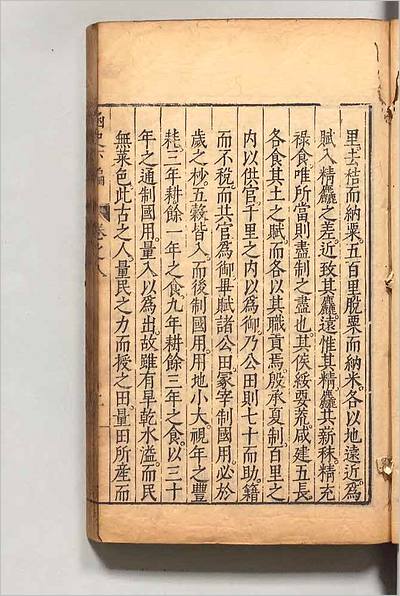 里去秸而納粟五百里脫粟而納米各以地遠近爲
賦入精麤之差近致其麤遠惟其精麤其薪秣精充
祿食唯所當則盡制之盡也其侯綏要荒咸建五長
各食其土之賦而各以其職貢焉殷承夏制百里之
内以供官千里之内以爲御乃公田則七十而助籍
而不稅而其官爲御畢賦諸公田冢宰制國用必於
歲之杪五穀皆入而後制國用用地小大視年之豐
耗三年耕餘一年之食九年耕餘三年之食以三十
年之通制國用量入以爲出故雖有旱乾水溢而民
無菜色此古之人量民之力而授之田量田所産而
函史下編 卷之八